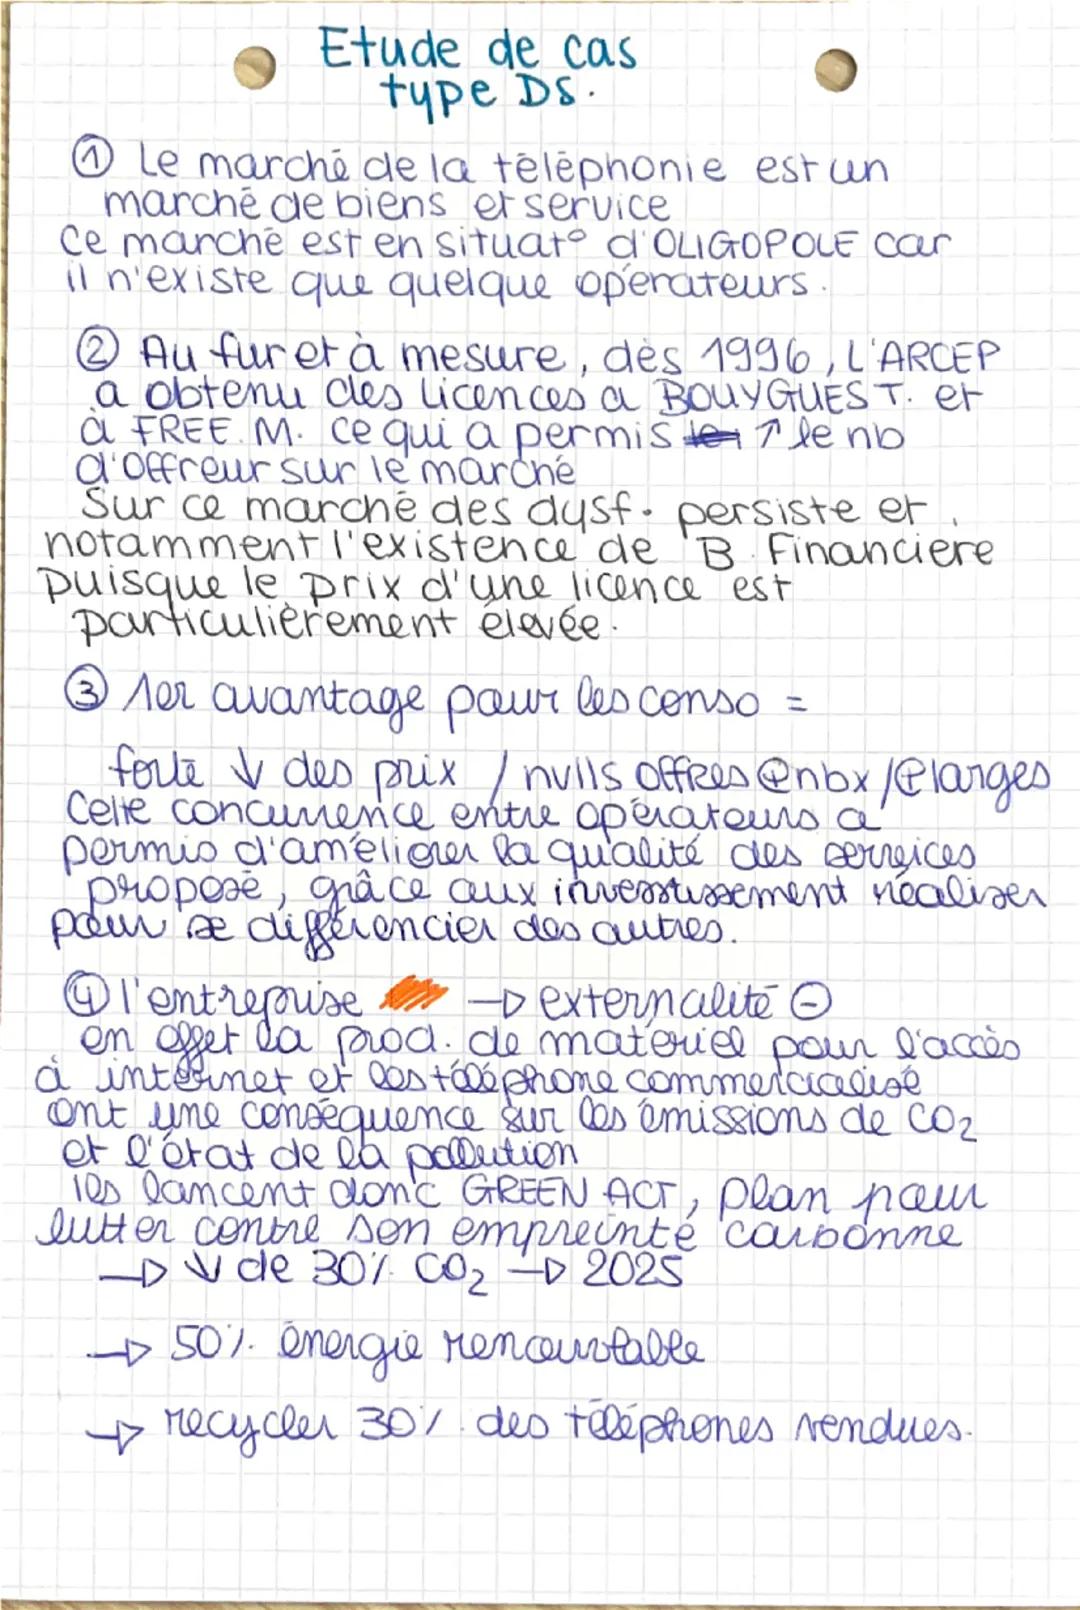 Etude de cas
type DS.
① Le marché de la téléphonie est un
marché de biens et service
Ce marché est en situat° d'OLIGOPOLE car
il n'existe que quelque opérateurs.
② Au fur et à mesure, dès 1996, L'ARCEP
a obtenu des licences a BOUYGUES T. et
à FREE M. ce qui a permis ↑ le nb
d'offreur sur le marché
Sur ce marché des dysf. persiste et
notamment l'existence de B. Financiere
puisque le prix d'une licence est
particulièrement élevée.
③ 1er avantage pour les conso =
forte ↓ des prix / nvlls offres ⊕nbx/⊕larges
Cette concurrence entre opérateurs a
permis d'améliorer la qualité des services
proposé, grâce aux investissement réaliser
pour se différencier des autres.
④ l'entreprise → externalité ⊖
en effet la prod. de matériel pour l'accès
à internet et les téléphone commercialisé
ont une conséquence sur les émissions de CO₂
et l'état de la pollution
ils lancent donc GREEN ACT, plan pour
lutter contre son empreinte carbonne
→ ↓ de 30% CO₂ → 2025
→ 50% énergie renouvlable
→ recycler 30% des téléphones vendues.